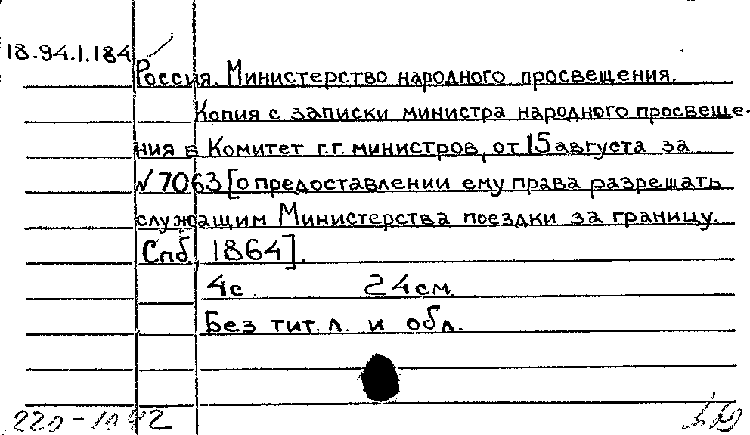 18.94.1.184
Россия. Министерство народного просвещения.
Копия с записки министра народного просвеще-
ния в Комитет г.г. министров, от 15 августа за
№ 7063 [о предоставлении ему права разрешать
служащим Министерства поездки за границу.
Спб, 1864].
4с. 24см.
Без тит. л. и обл.